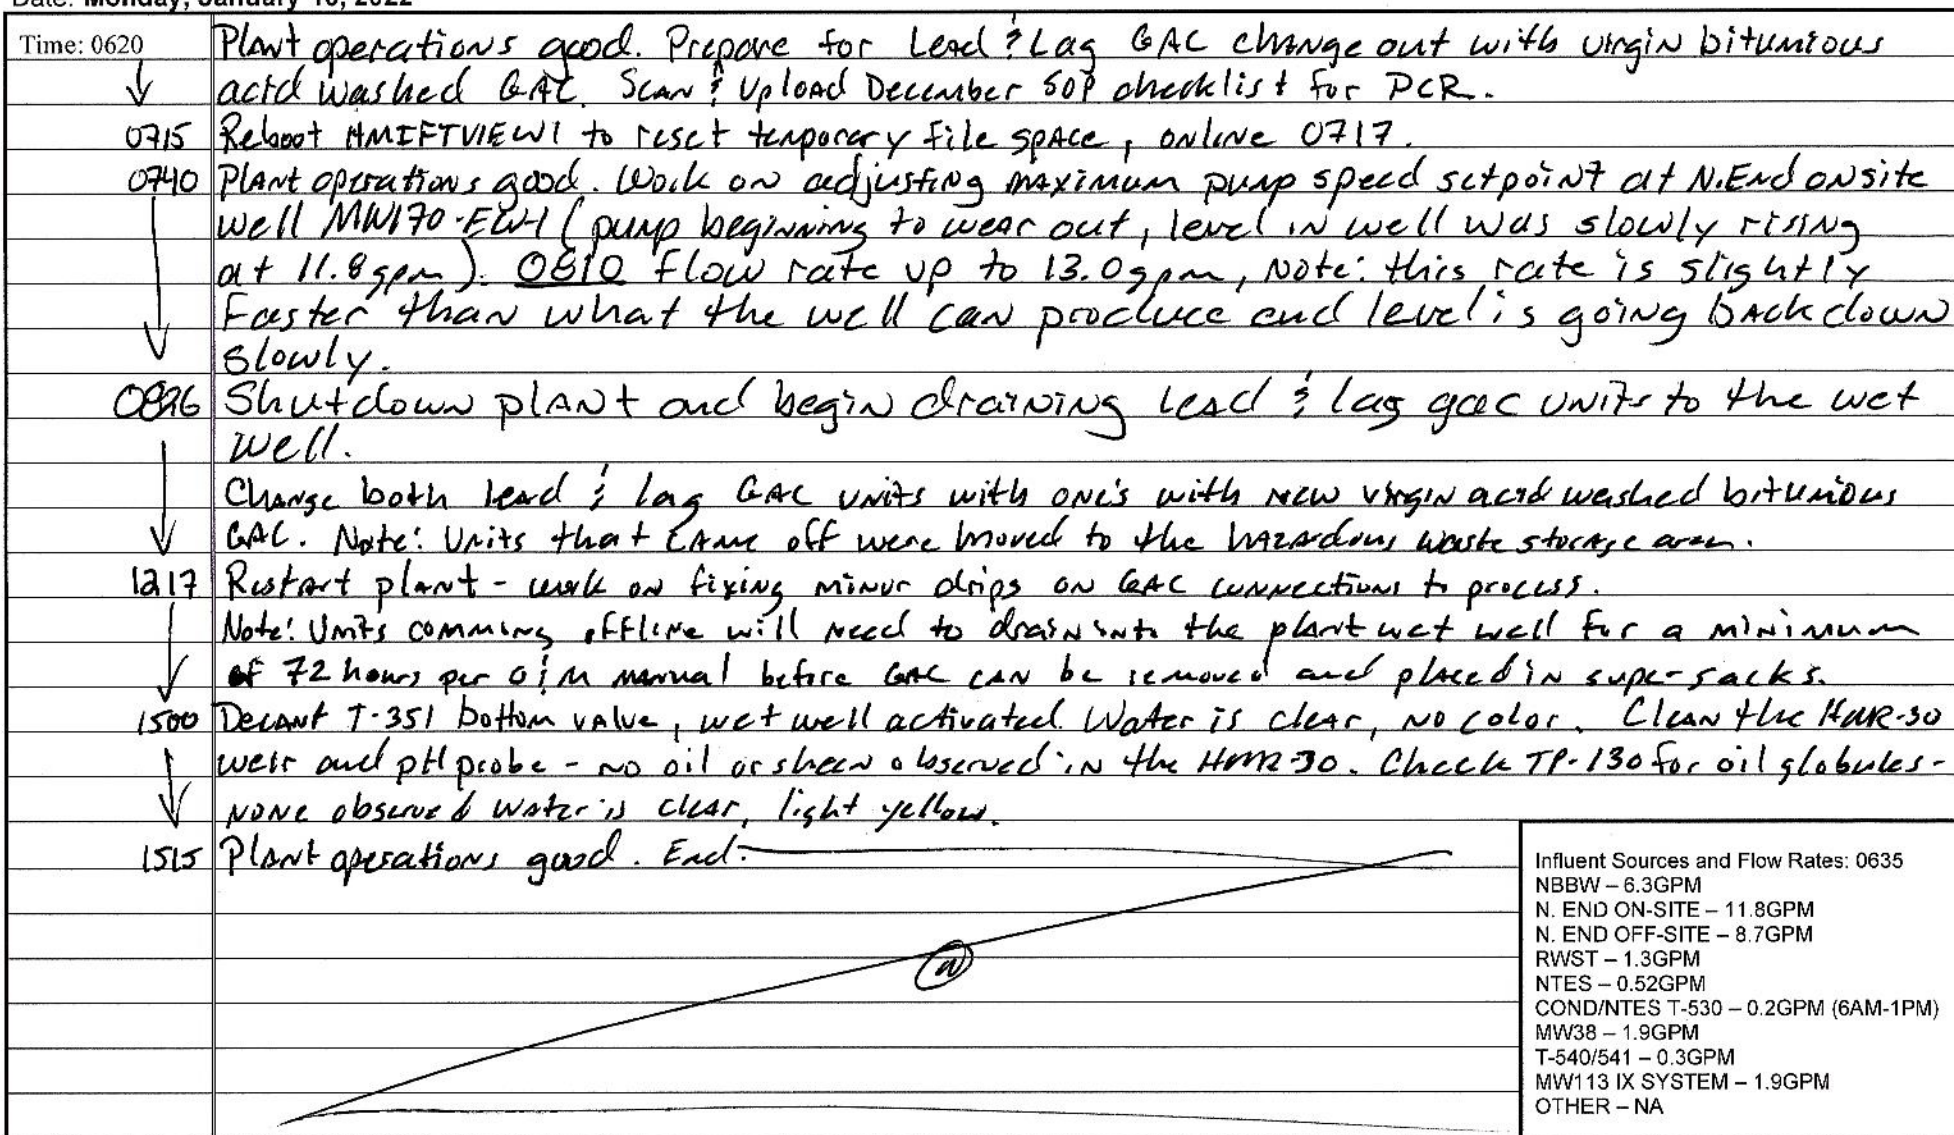 Date: Monday, January 10, 2022
Time: 0620 Plant operations good. Prepare for Lead & Lag GAC change out with virgin bitumious
acid washed GAC. Scan & Upload December SOP checklist for PCR.
0715 Reboot HMIFTVIEW1 to reset temporary file space, online 0717.
0740 Plant operations good. Work on adjusting maximum pump speed setpoint at N.End onsite
well MW170-EW-1 (pump beginning to wear out, level in well was slowly rising
at 11.8gpm). 0810 flow rate up to 13.0gpm, Note: this rate is slightly
Faster than what the well can produce and level is going back down
slowly.
Shutdown plant and begin draining lead & lag gac units to the wet
well.
Change both lead & lag GAC units with one's with new virgin acid washed bitumious
GAC. Note: Units that came off were moved to the hazardous waste storage area.
1217 Restart plant - work on fixing minor drips on GAC connections to process.
Note: Units comming offline will need to drain into the plant wet well for a minimum
of 72 hours per O&M manual before GAC can be removed and placed in super-sacks.
1500 Decant T-351 bottom valve, wet well activated. Water is clear, no color. Clean the HMR-30
weir and pH probe - no oil or sheen observed in the HMR-30. Check TP-130 for oil globules-
none observed water is clear, light yellow.
1515 Plant operations good. End.
Influent Sources and Flow Rates: 0635
NBBW – 6.3GPM
N. END ON-SITE – 11.8GPM
N. END OFF-SITE – 8.7GPM
RWST – 1.3GPM
NTES – 0.52GPM
COND/NTES T-530 – 0.2GPM (6AM-1PM)
MW38 – 1.9GPM
T-540/541 – 0.3GPM
MW113 IX SYSTEM – 1.9GPM
OTHER – NA